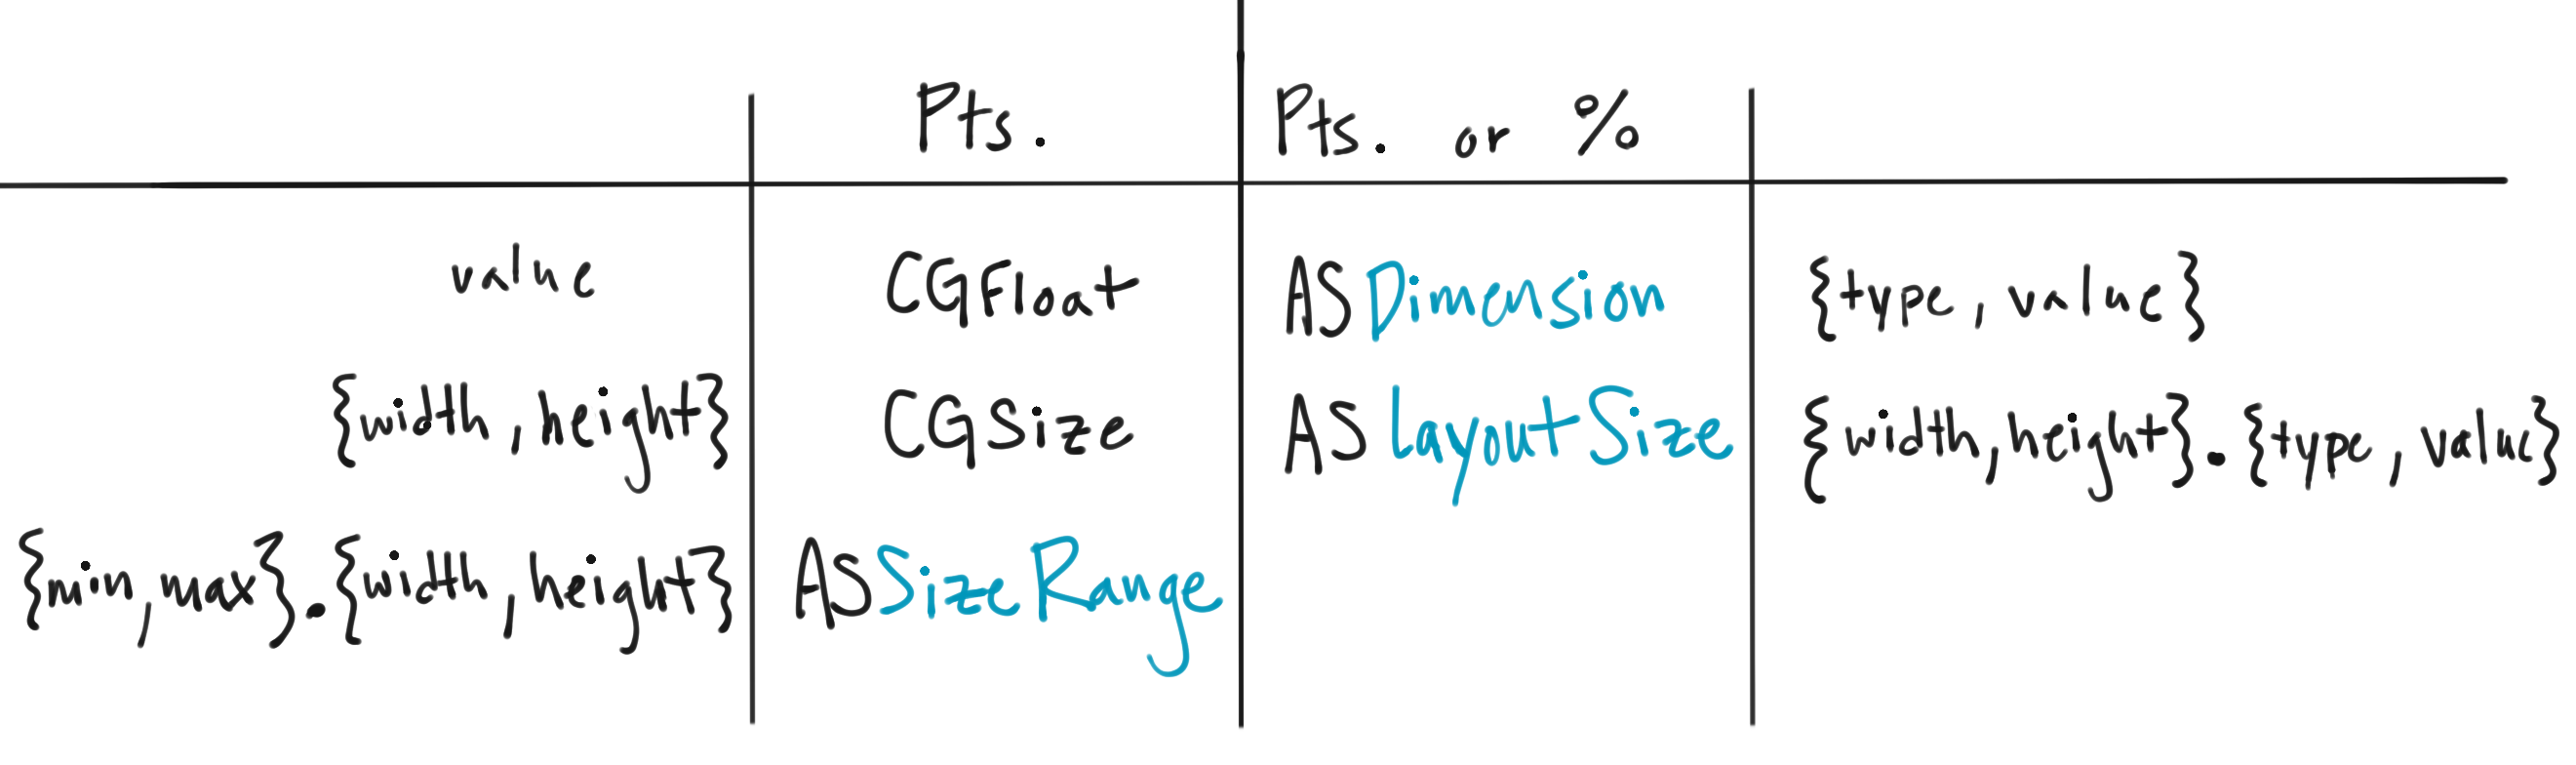 Pts. Pts. or %
value CGFloat ASDimension {type, value}
{width, height} CGSize ASLayoutSize {width, height}.{type, value}
{min, max}.{width, height} ASSizeRange